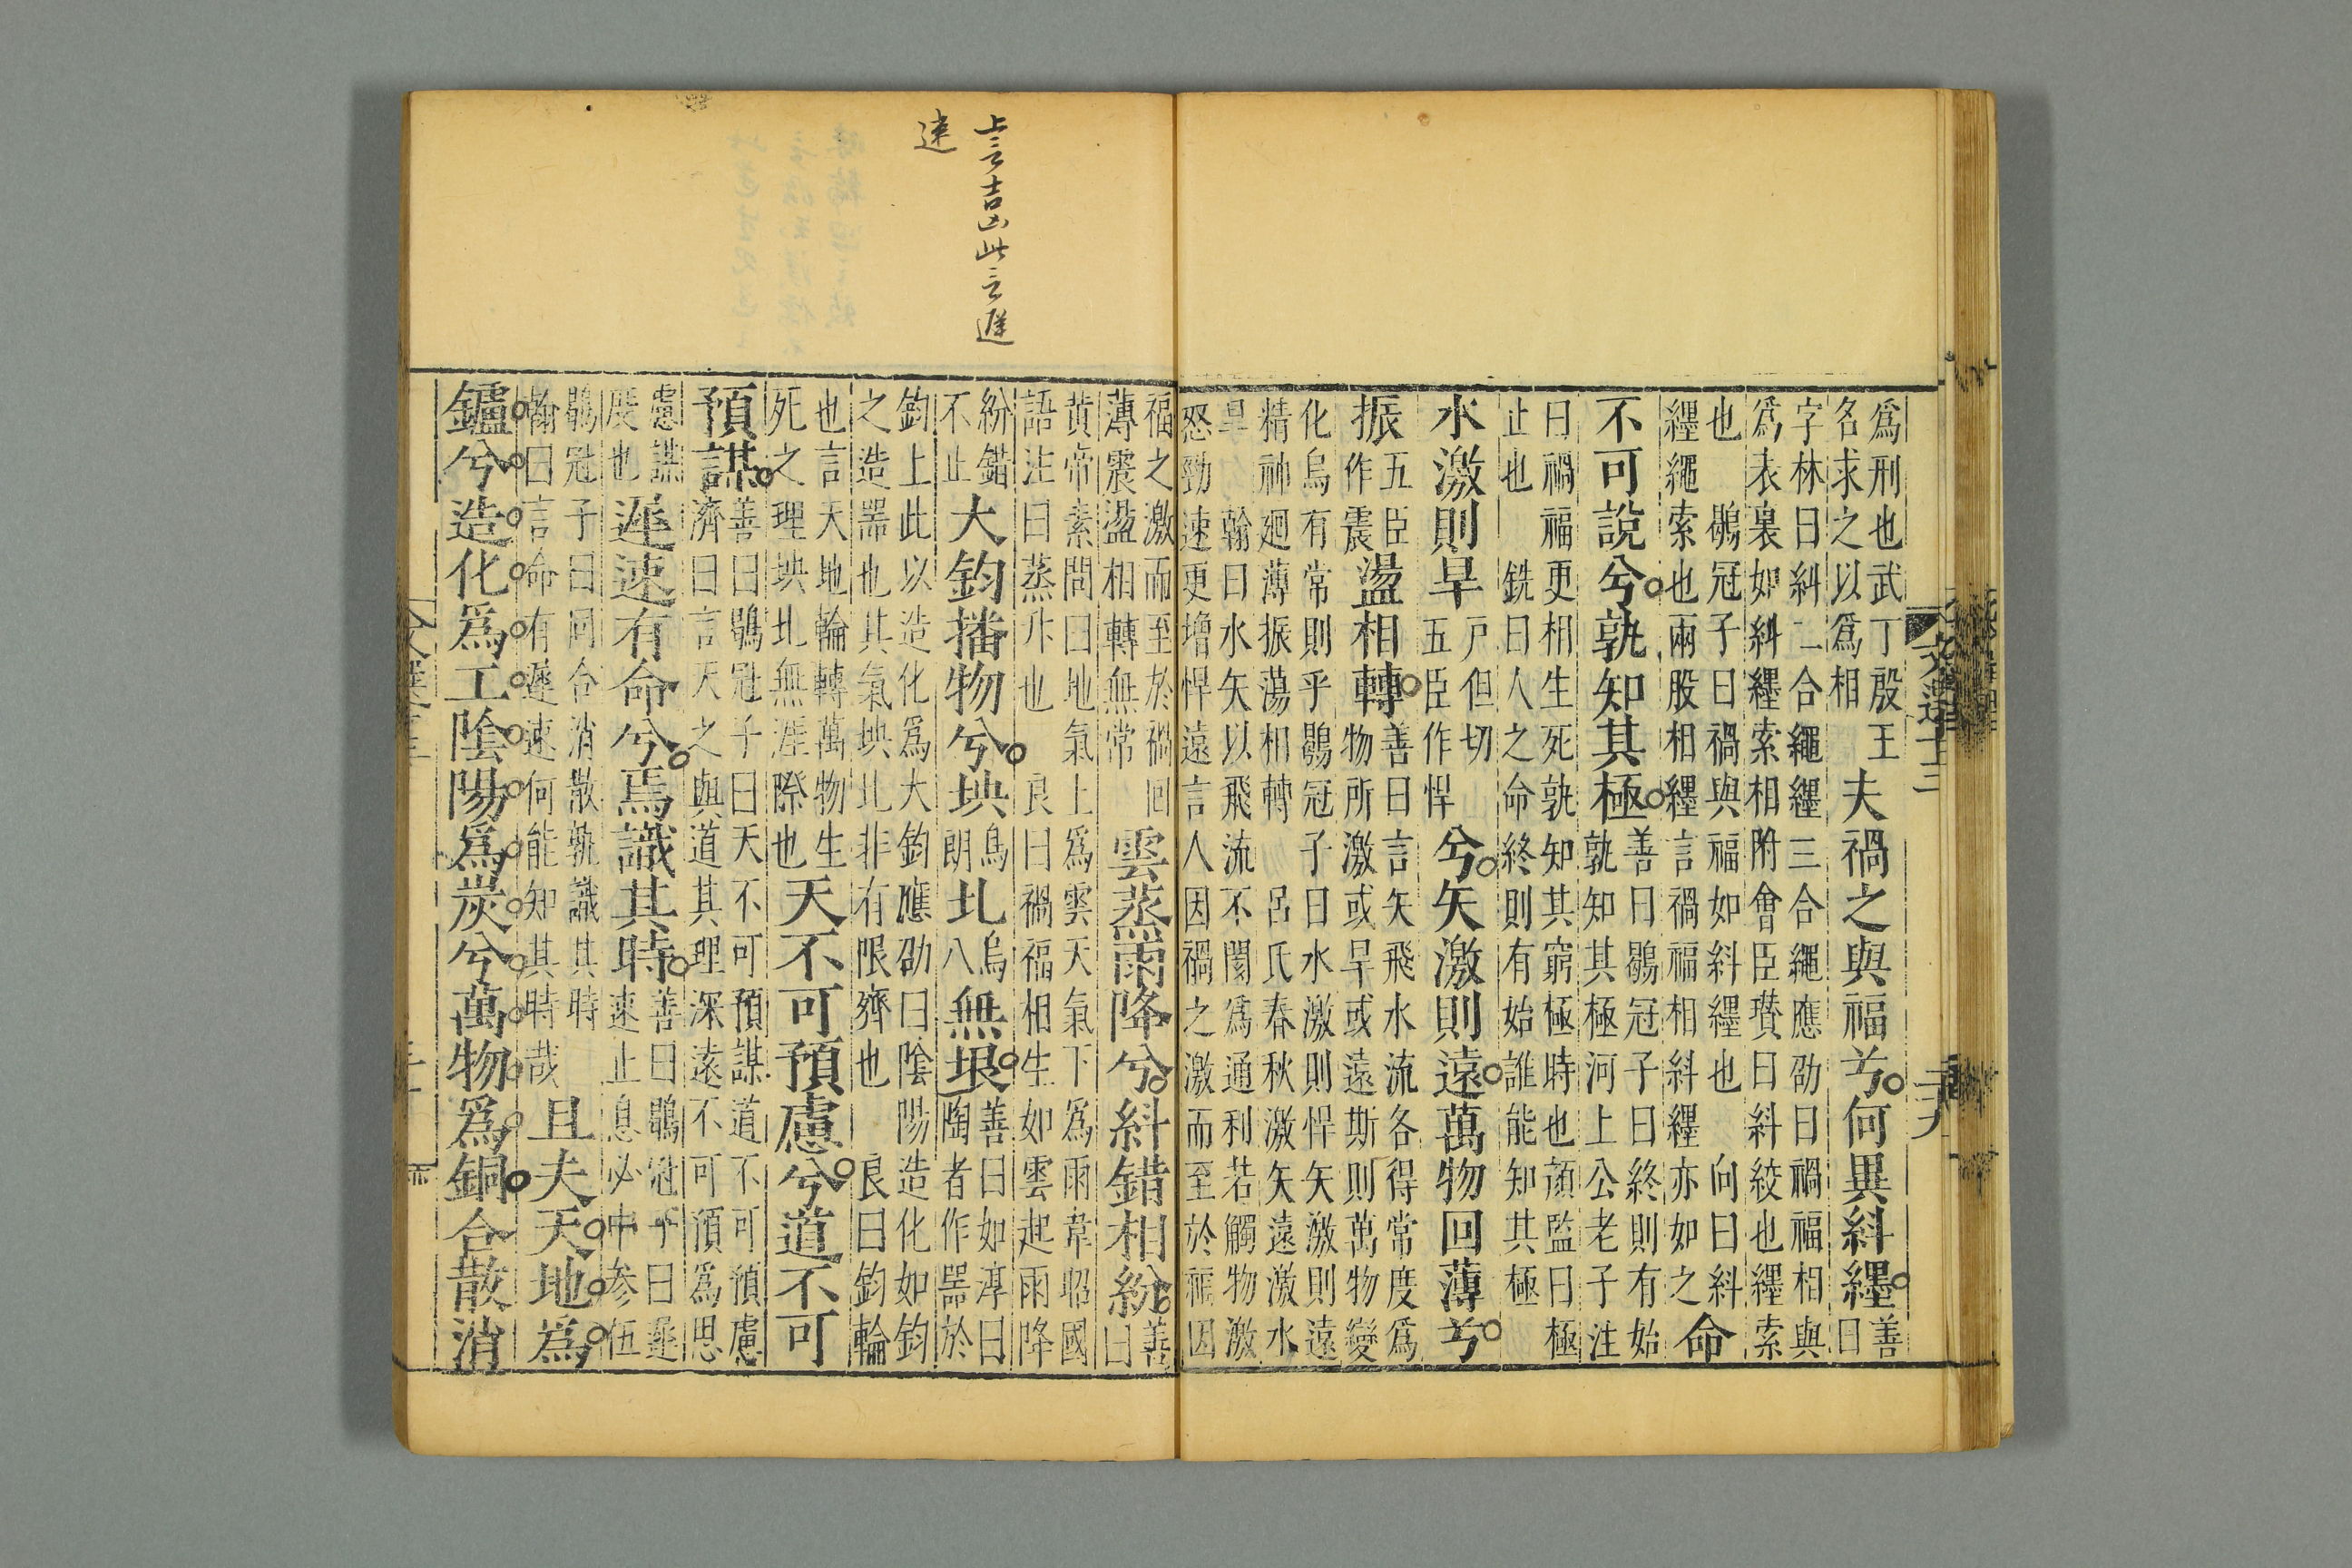 爲刑也武丁殷王
名求之以爲相
夫禍之與福兮何異糾纆
善
曰
字林曰糾二合繩纆三合繩應劭曰禍福相與
爲表裏如糾纆索相附會臣瓚曰糾絞也纆索
也 鶡冠子曰禍與福如糾纆也 向曰糾
纆繩索也兩股相纆言禍福相糾纆亦如之
命
不可說兮孰知其極
善曰鶡冠子曰終則有始
孰知其極河上公老子注
曰禍福更相生死孰知其窮極時也顔監曰極
止也 銑曰人之命終則有始誰能知其極
水激則旱
戸但切
五臣作悍
兮矢激則遠萬物回薄兮
振
五臣
作震
盪相轉
善曰言矢飛水流各得常度爲
物所激或旱或遠斯則萬物變
化烏有常則乎鶡冠子曰水激則悍矢激則遠
精神廻薄振蕩相轉 呂氏春秋激矢遠激水
旱 翰曰水矢以飛流不閡爲通利若觸物激
怒勁速更增悍遠言人因禍之激而至於福因
福之激而至於禍回
薄震盪相轉無常
雲蒸雨降兮糾錯相紛
善
曰
黃帝素問曰地氣上爲雲天氣下爲雨韋昭國
語注曰蒸升也 良曰禍福相生如雲起雨降
紛錯
不止
大鈞播物兮坱
烏
朗
圠
烏
八
無垠
善曰如淳曰
陶者作器於
鈞上此以造化爲大鈞應劭曰陰陽造化如鈞
之造器也其氣坱圠非有限齊也 良曰鈞輪
也言天地輪轉萬物生
死之理坱圠無涯際也
天不可預慮兮道不可
預謀
善曰鶡冠子曰天不可預謀道不可預慮
濟曰言天之與道其理深遠不可預爲思
慮謀
度也
遲速有命兮焉識其時
善曰鶡冠子曰遲
速止息必中參伍
鶡冠子曰同合消散孰識其時
翰曰言命有遲速何能知其時哉
且夫天地爲
鑪兮造化爲工陰陽爲炭兮萬物爲銅合散消
文選十三
二十九
上言吉凶此言遲
速